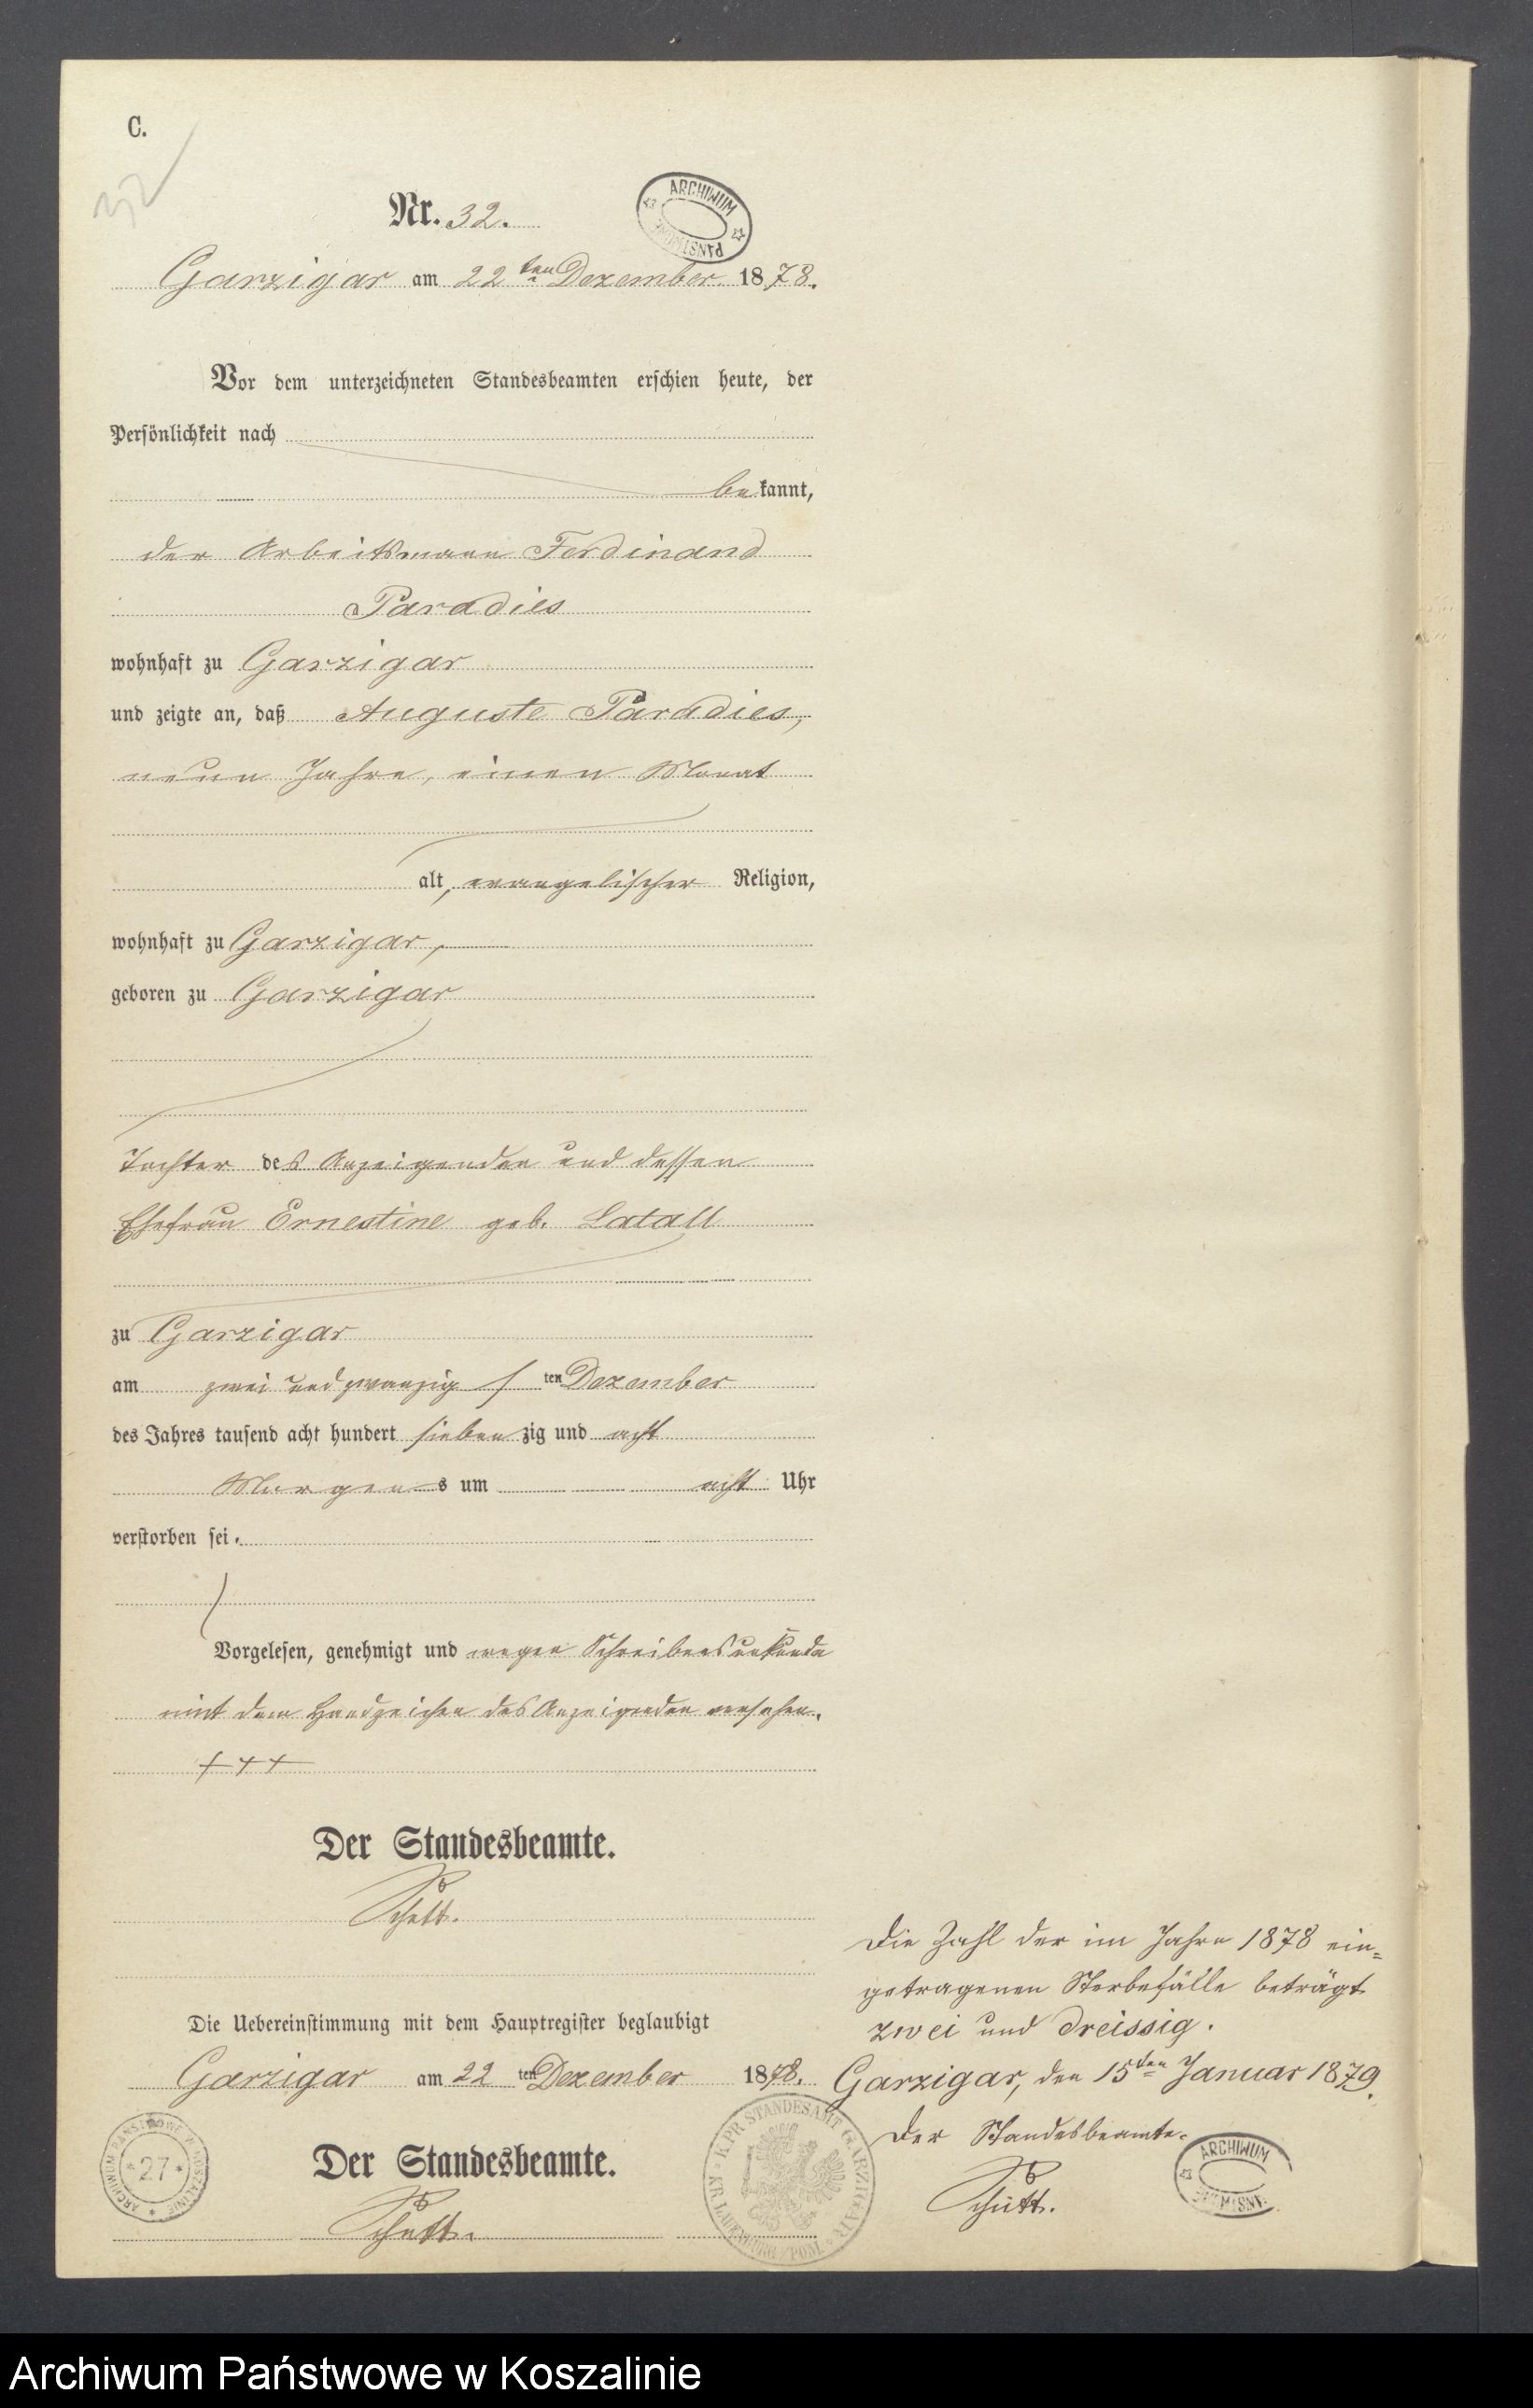 C.
32
Nr. 32.
ARCHIWUM PAŃSTWOWE
Garzigar am 22ten Dezember 1878.
Vor dem unterzeichneten Standesbeamten erschien heute, der
Persönlichkeit nach
bekannt,
der Arbeitsmann Ferdinand
Paradies
wohnhaft zu Garzigar
und zeigte an, daß Auguste Paradies,
neun Jahre, einen Monat
alt, evangelischer Religion,
wohnhaft zu Garzigar,
geboren zu Garzigar
Tochter des Anzeigenden und dessen
Ehefrau Ernestine geb. Latall
zu Garzigar
am zwei und zwanzigsten Dezember
des Jahres tausend acht hundert siebenzig und acht
Morgens um acht Uhr
verstorben sei.
Vorgelesen, genehmigt und wegen Schreibensunkunde
mit dem Handzeichen des Anzeigenden versehen.
+++
Der Standesbeamte.
Schütt.
Die Uebereinstimmung mit dem Hauptregister beglaubigt
Garzigar am 22ten Dezember 1878.
Der Standesbeamte.
Schütt.
ARCHIWUM PAŃSTWOWE W KOSZALINIE
*27*
K.PR. STANDESAMT GARZIGAR
KR LAUENBURG /POM.
Die Zahl der im Jahre 1878 ein=
getragenen Sterbefälle beträgt
zwei und dreissig.
Garzigar, den 15ten Januar 1879.
Der Standesbeamte.
Schütt.
ARCHIWUM
Archiwum Państwowe w Koszalinie